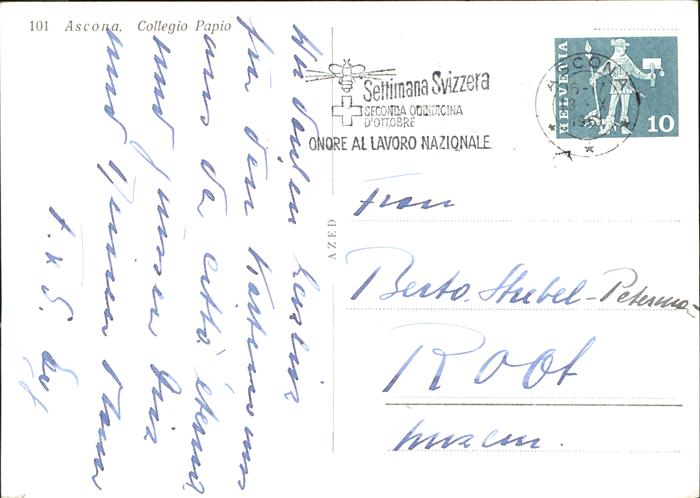 101 Ascona. Collegio Papio
Settimana Svizzera
SECONDA QUINDICINA
D'OTTOBRE
ONORE AL LAVORO NAZIONALE
ASCONA
HELVETIA
10
AZED
Wir danken herzlich
für den Kartengruss
aus der città eterna
und grüssen Dich
und Deinen Mann
Frau
Berta Strebel-Peterma-
Root
Luzern.